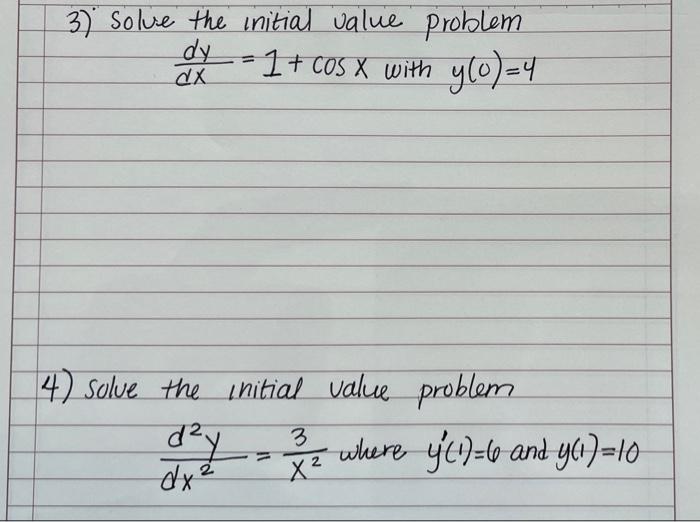 3) Solve the initial value problem
dy/dx = 1 + cos x with y(0)=4
4) Solve the initial value problem
d²y/dx² = 3/x² where y'(1)=6 and y(1)=10